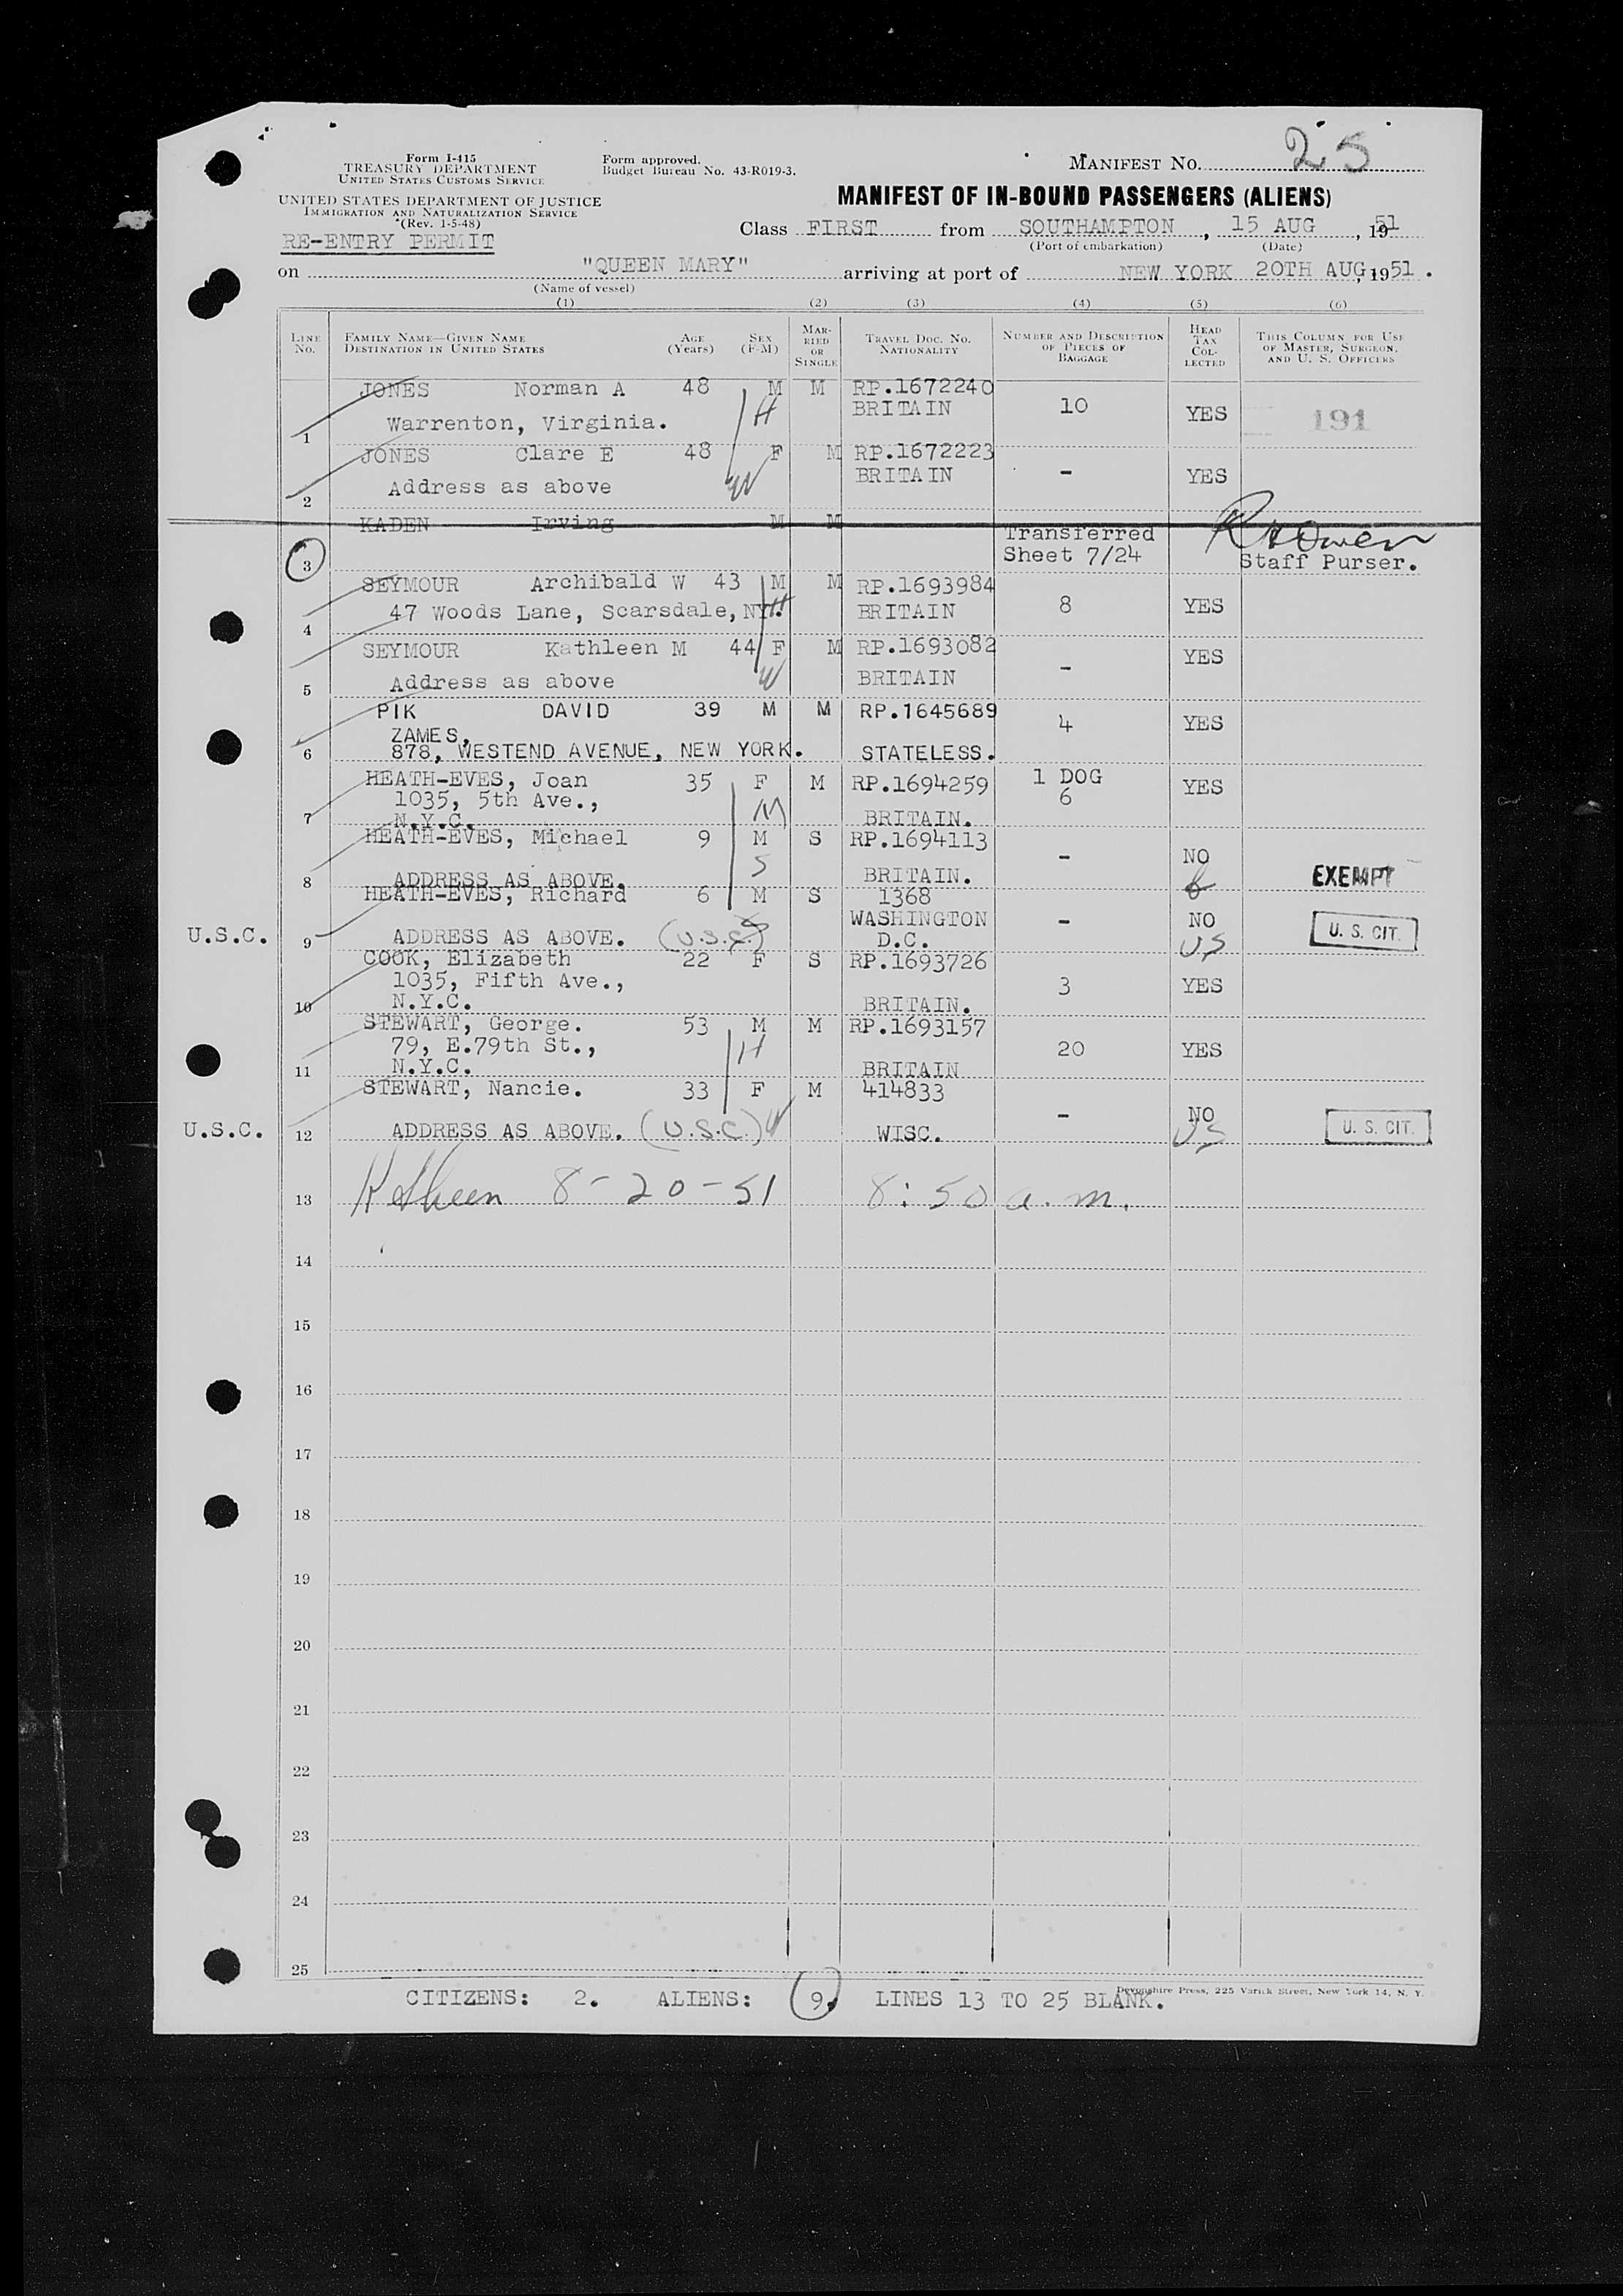 Form I-415
TREASURY DEPARTMENT
UNITED STATES CUSTOMS SERVICE
UNITED STATES DEPARTMENT OF JUSTICE
IMMIGRATION AND NATURALIZATION SERVICE
(Rev. 1-5-48)
RE-ENTRY PERMIT
Form approved.
Budget Bureau No. 43-R019-3.
MANIFEST NO. 25
MANIFEST OF IN-BOUND PASSENGERS (ALIENS)
Class FIRST from SOUTHAMPTON, 15 AUG, 1951
(Port of embarkation) (Date)
on "QUEEN MARY" arriving at port of NEW YORK 20TH AUG, 1951.
(Name of vessel)
(1) (2) (3) (4) (5) (6)
LINE NO.
FAMILY NAME—GIVEN NAME
DESTINATION IN UNITED STATES
AGE (Years)
SEX (F-M)
MARRIED OR SINGLE
TRAVEL DOC. NO.
NATIONALITY
NUMBER AND DESCRIPTION OF PIECES OF BAGGAGE
HEAD TAX COLLECTED
THIS COLUMN FOR USE OF MASTER, SURGEON, AND U. S. OFFICERS
JONES Norman A 48 M M RP.1672240
1 Warrenton, Virginia. H BRITAIN 10 YES 191
JONES Clare E 48 F M RP.1672223
2 Address as above W BRITAIN - YES
KADEN Irving M M
3 Transferred Sheet 7/24 R H Owen
Staff Purser.
SEYMOUR Archibald W 43 M M RP.1693984
4 47 Woods Lane, Scarsdale, NY. H BRITAIN 8 YES
SEYMOUR Kathleen M 44 F M RP.1693082
5 Address as above W BRITAIN - YES
PIK DAVID 39 M M RP.1645689
ZAMES, 4 YES
6 878, WESTEND AVENUE, NEW YORK. STATELESS.
HEATH-EVES, Joan 35 F M RP.1694259 1 DOG YES
1035, 5th Ave., M 6
7 N.Y.C. BRITAIN.
HEATH-EVES, Michael 9 M S RP.1694113
8 ADDRESS AS ABOVE. S BRITAIN. - NO EXEMPT
HEATH-EVES, Richard 6 M S 1368
WASHINGTON - NO
U.S.C. 9 ADDRESS AS ABOVE. (U.S.C.) S D.C. US U. S. CIT.
COOK, Elizabeth 22 F S RP.1693726
1035, Fifth Ave., 3 YES
10 N.Y.C. BRITAIN.
STEWART, George. 53 M M RP.1693157
79, E.79th St., H 20 YES
11 N.Y.C. BRITAIN
STEWART, Nancie. 33 F M 414833
- NO
U.S.C. 12 ADDRESS AS ABOVE. (U.S.C.) W WISC. US U. S. CIT.
13 8-20-51 8:50 a.m.
14
15
16
17
18
19
20
21
22
23
24
25
CITIZENS: 2. ALIENS: 9. LINES 13 TO 25 BLANK.
Devonshire Press, 225 Varick Street, New York 14, N. Y.